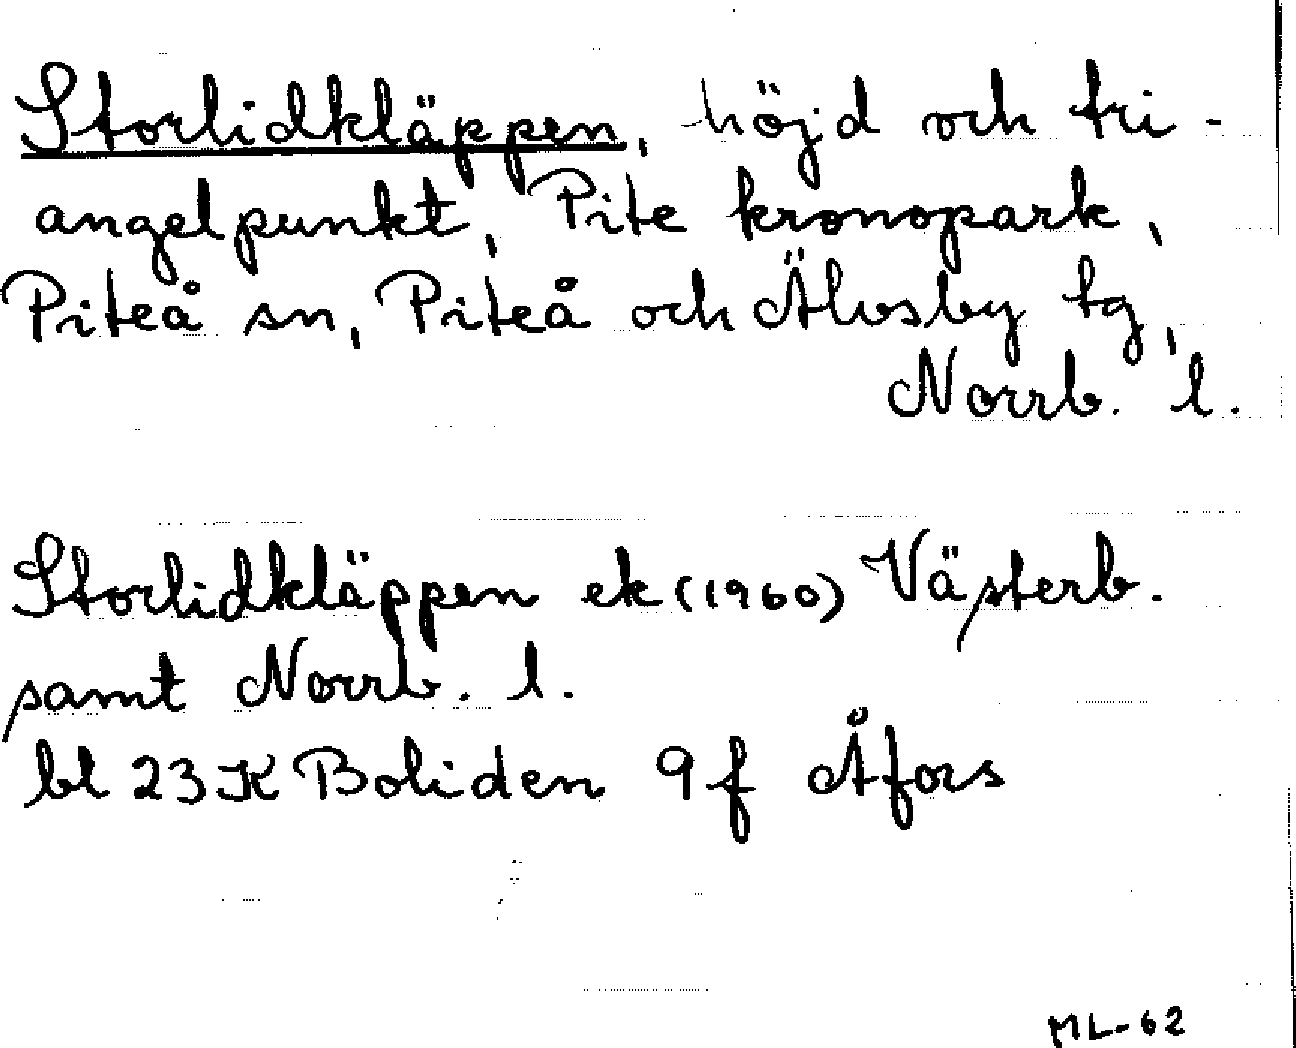 Storlidkläppen, höjd och tri-
angelpunkt, Pite kronopark,
Piteå sn, Piteå och Älvsby tg,
Norrb. l.
Storlidkläppen ek (1960) Västerb.
samt Norrb. l.
bl 23 K Boliden 9 f Åfors
ML-62